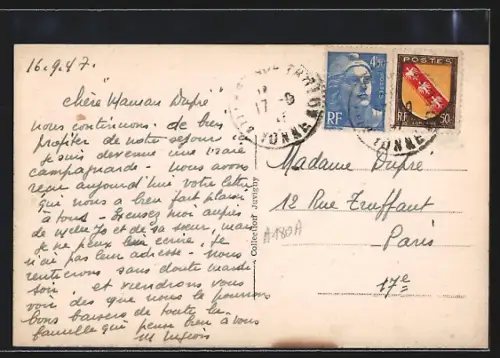 16.9.47.
"Chère Maman Dupré"
nous continuons de bien
profiter de notre séjour
je suis devenue une vraie
campagnarde. nous avons
reçu aujourd'hui votre lettre
qui nous a bien fait plaisir
à tous. Excusez moi auprès
de Melle Jo et de sa sœur, mais
je ne peux leur écrire, je
n'ai pas leur adresse. nous
rentrerons sans doute mardi
soir, et viendrons vous
voir dès que nous le pourrons
bons baisers de toute la
famille qui pense bien à vous
Collection Juvigny
17-9
YONNE
4f50
POSTES
RF
POSTES
RF
50c
YONNE
Madame Dupré
12 Rue Truffaut
Paris
17e
A180A